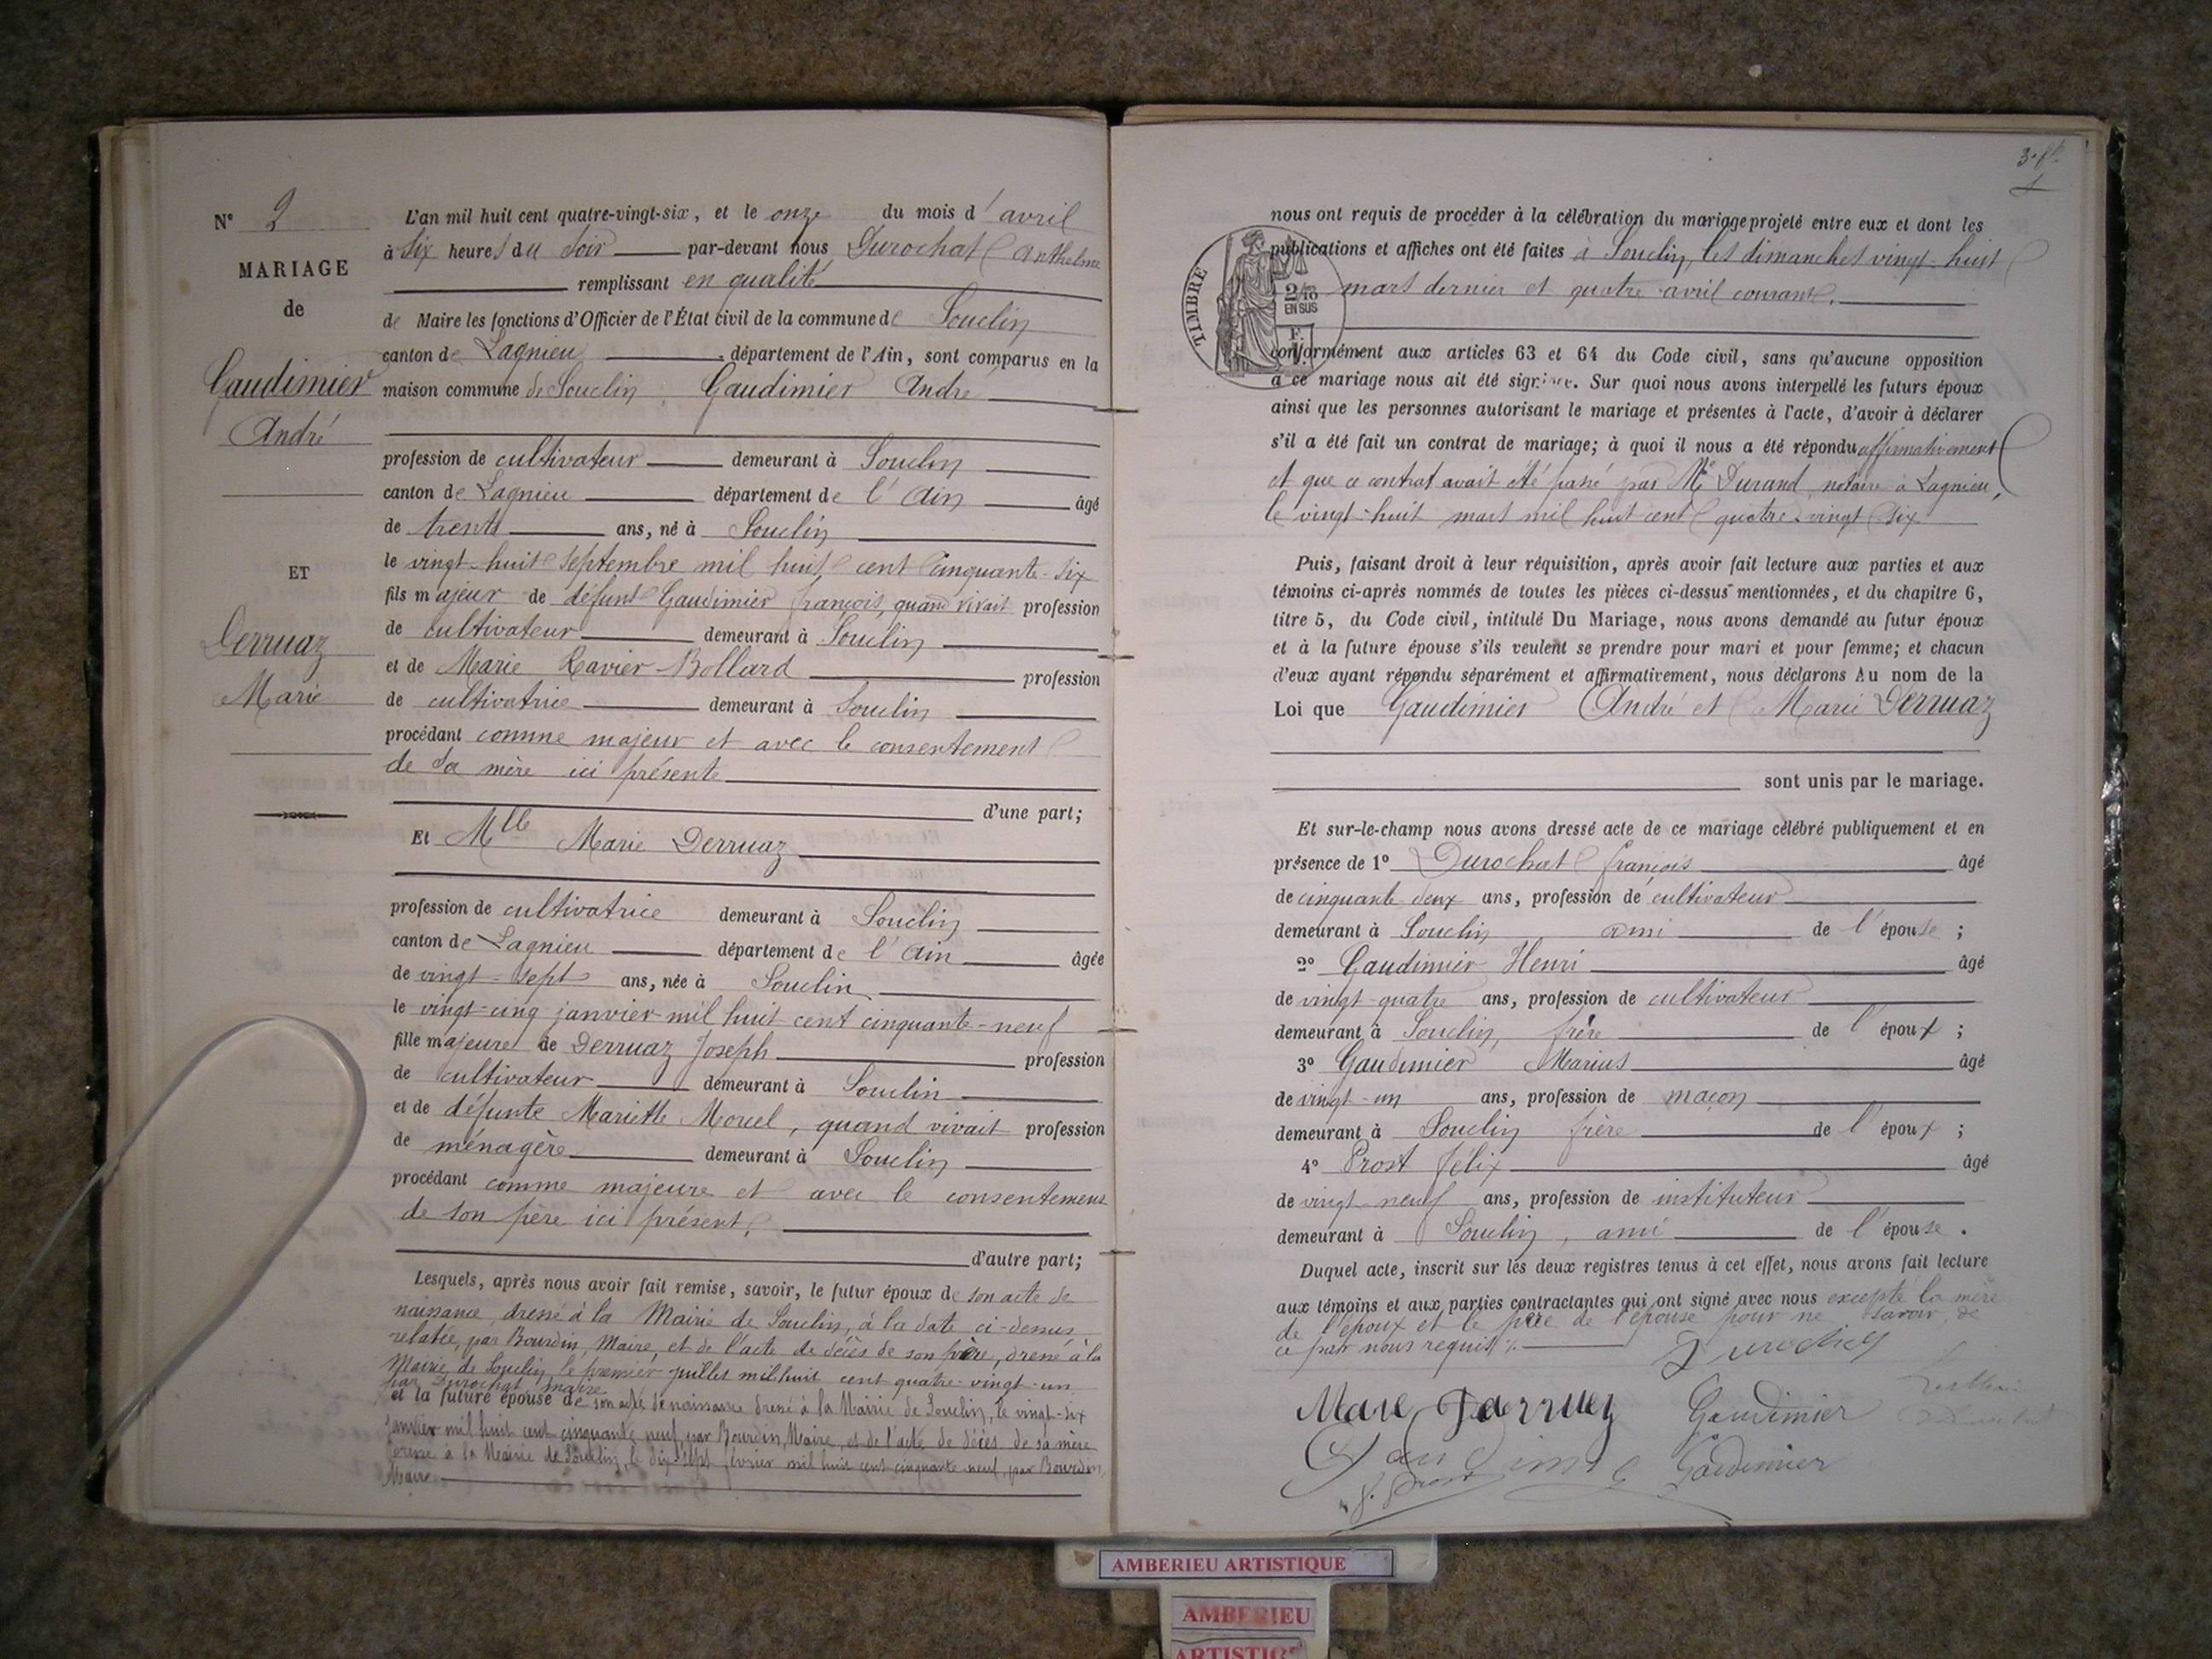 N° 2
MARIAGE
de
Gaudimier
André
ET
Derruaz
Marie
L'an mil huit cent quatre-vingt-six, et le onze du mois d'avril
à six heures du soir par-devant nous Durochat Anthelme
remplissant en qualité
de Maire les fonctions d'Officier de l'État civil de la commune de Souclin
canton de Lagnieu, département de l'Ain, sont comparus en la
maison commune de Souclin, Gaudimier Andre
profession de cultivateur demeurant à Souclin
canton de Lagnieu département de l'Ain âgé
de trente ans, né à Souclin
le vingt-huit septembre mil huit cent cinquante-six
fils majeur de défunt Gaudimier françois, quand vivait profession
de cultivateur demeurant à Souclin
et de Marie Ravier-Bollard profession
de cultivatrice demeurant à Souclin
procédant comme majeur et avec le consentement
de sa mère ici présente
d'une part;
Et Mlle Marie Derruaz
profession de cultivatrice demeurant à Souclin
canton de Lagnieu département de l'Ain âgée
de vingt-sept ans, née à Souclin
le vingt-cinq janvier mil huit cent cinquante-neuf
fille majeure de Derruaz Joseph profession
de cultivateur demeurant à Souclin
et de défunte Mariette Morel, quand vivait profession
de ménagère demeurant à Souclin
procédant comme majeure et avec le consentement
de son père ici présent,
d'autre part;
Lesquels, après nous avoir fait remise, savoir, le futur époux de son acte de
naissance, dressé à la Mairie de Souclin, à la date ci-dessus
relatée, par Bourdin, Maire, et de l'acte de décès de son père, dressé à la
Mairie de Souclin, le premier juillet mil huit cent quatre-vingt-un
par Durochat, maire
et la future épouse de son acte de naissance dressé à la Mairie de Souclin, le vingt-six
janvier mil huit cent cinquante neuf, par Bourdin, Maire, et de l'acte de décès de sa mère
dressé à la Mairie de Souclin, le dix-sept février mil huit cent cinquante neuf, par Bourdin,
Maire
TIMBRE
2/10
EN SUS
nous ont requis de procéder à la célébration du mariage projeté entre eux et dont les
publications et affiches ont été faites à Souclin, les dimanches vingt-huit
mars dernier et quatre avril courant,
conformément aux articles 63 et 64 du Code civil, sans qu'aucune opposition
à ce mariage nous ait été signifiée. Sur quoi nous avons interpellé les futurs époux
ainsi que les personnes autorisant le mariage et présentes à l'acte, d'avoir à déclarer
s'il a été fait un contrat de mariage; à quoi il nous a été répondu affirmativement
et que ce contrat avait été passé par Me Durand, notaire à Lagnieu,
le vingt-huit mars mil huit cent quatre-vingt six
Puis, faisant droit à leur réquisition, après avoir fait lecture aux parties et aux
témoins ci-après nommés de toutes les pièces ci-dessus mentionnées, et du chapitre 6,
titre 5, du Code civil, intitulé Du Mariage, nous avons demandé au futur époux
et à la future épouse s'ils veulent se prendre pour mari et pour femme; et chacun
d'eux ayant répondu séparément et affirmativement, nous déclarons Au nom de la
Loi que Gaudimier André et Marie Derruaz
sont unis par le mariage.
Et sur-le-champ nous avons dressé acte de ce mariage célébré publiquement et en
présence de 1° Durochat françois âgé
de cinquante deux ans, profession de cultivateur
demeurant à Souclin ami de l'épouse;
2° Gaudimier Henri âgé
de vingt-quatre ans, profession de cultivateur
demeurant à Souclin, frère de l'époux;
3° Gaudimier Marius âgé
de vingt-un ans, profession de maçon
demeurant à Souclin frère de l'époux;
4° Prost félix âgé
de vingt-neuf ans, profession de instituteur
demeurant à Souclin, ami de l'épouse.
Duquel acte, inscrit sur les deux registres tenus à cet effet, nous avons fait lecture
aux témoins et aux parties contractantes qui ont signé avec nous excepté la mère
de l'époux et le père de l'épouse pour ne savoir, de
ce par nous requis
Durochat
Gaudimier
Gaudimier
f. Prost
AMBERIEU ARTISTIQUE
AMBERIEU
ARTISTIQ